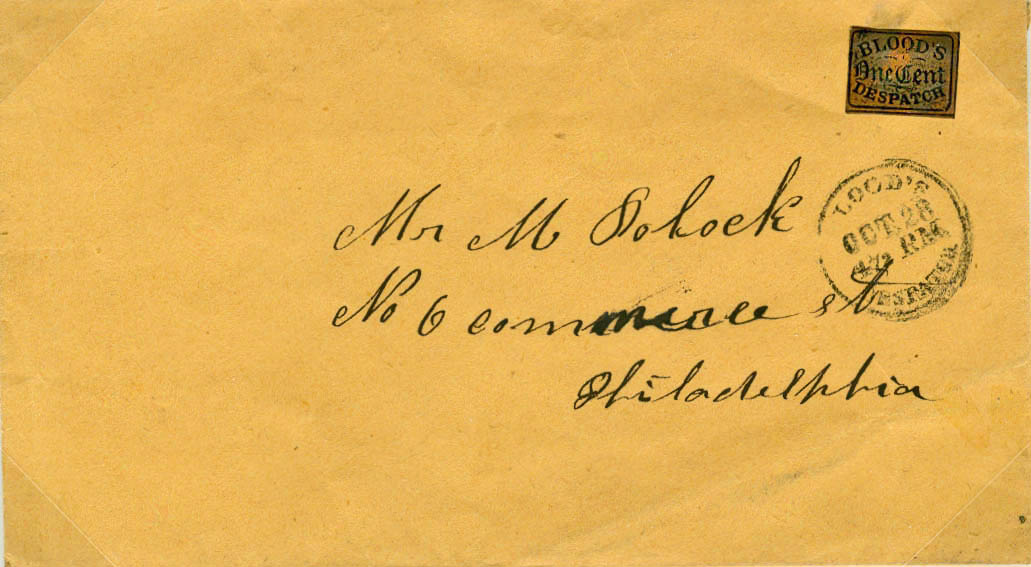 BLOOD'S
One Cent
DESPATCH
LOOD'S
OCT. 28
PM
DESPATCH
Mr M Polock
No 6 commerce st
Philadelphia